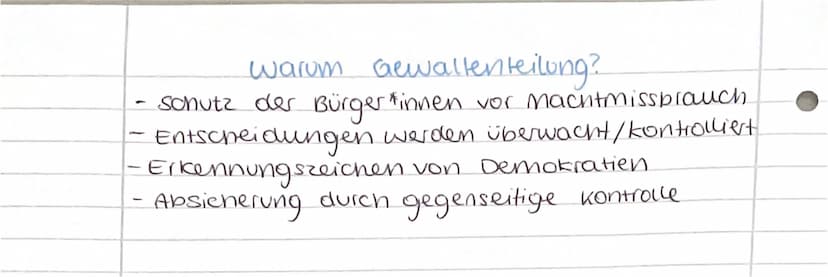 Warum Gewaltenteilung?
- Schutz der Bürger*innen vor Machtmissbrauch
- Entscheidungen werden überwacht/kontrolliert
- Erkennungszeichen von Demokratien
- Absicherung durch gegenseitige Kontrolle